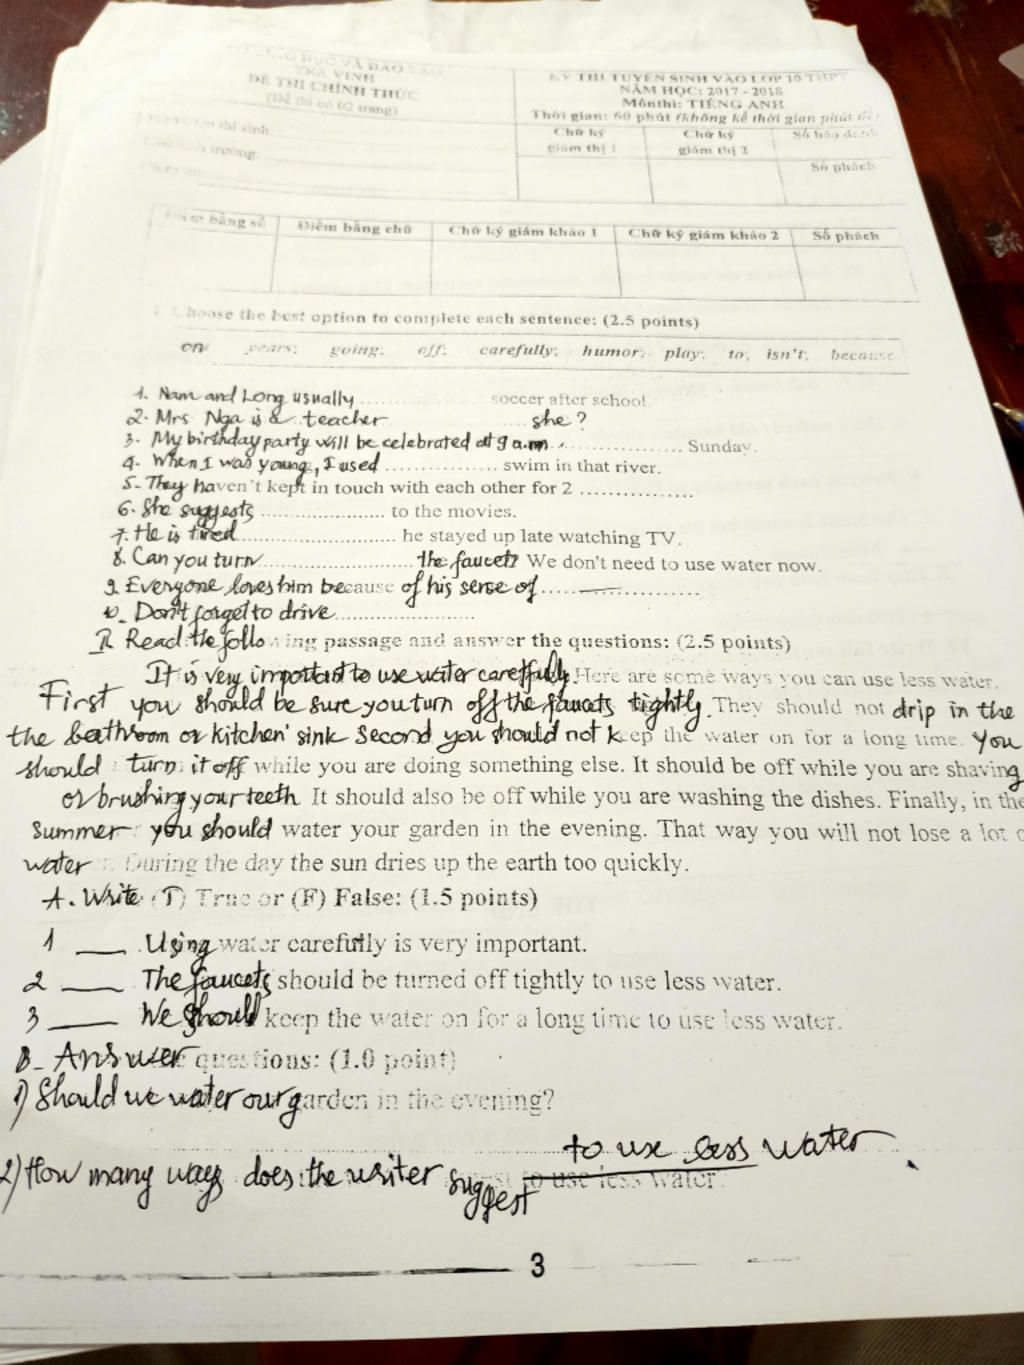 TRÀ VINH
ĐỀ THI CHÍNH THỨC
(Đề thi có 02 trang)
KỲ THI TUYỂN SINH VÀO LỚP 10 THPT
NĂM HỌC: 2017 - 2018
Mônthi: TIẾNG ANH
Thời gian: 60 phút (không kể thời gian phát đề)
thí sinh
trường:
Chữ ký giám thị 1
Chữ ký giám thị 2
Số báo danh
Số phách
Điểm bằng số Điểm bằng chữ Chữ ký giám khảo 1 Chữ ký giám khảo 2 Số phách
Choose the best option to complete each sentence: (2.5 points)
on years; going; off; carefully; humor; play; to; isn't; because
1. Nam and Long usually .................... soccer after school.
2. Mrs Nga is a teacher .................... she?
3. My birthday party will be celebrated at 9 a.m .................... Sunday.
4. When I was young, I used .................... swim in that river.
5. They haven't kept in touch with each other for 2 ....................
6. She suggests .................... to the movies.
7. He is tired .................... he stayed up late watching TV.
8. Can you turn .................... the faucet? We don't need to use water now.
9. Everyone loves him because of his sense of ....................
10. Don't forget to drive ....................
II. Read the following passage and answer the questions: (2.5 points)
It is very important to use water carefully. Here are some ways you can use less water.
First you should be sure you turn off the faucets tightly. They should not drip in the
the bathroom or kitchen sink Second you should not keep the water on for a long time. You
should turn it off while you are doing something else. It should be off while you are shaving
or brushing your teeth. It should also be off while you are washing the dishes. Finally, in the
summer you should water your garden in the evening. That way you will not lose a lot
water. During the day the sun dries up the earth too quickly.
A. Write (T) True or (F) False: (1.5 points)
1 ___ Using water carefully is very important.
2 ___ The faucets should be turned off tightly to use less water.
3 ___ We should keep the water on for a long time to use less water.
B. Answer questions: (1.0 point)
1) Should we water our garden in the evening?
2) How many ways does the writer suggest to use less water
to use less water.
3